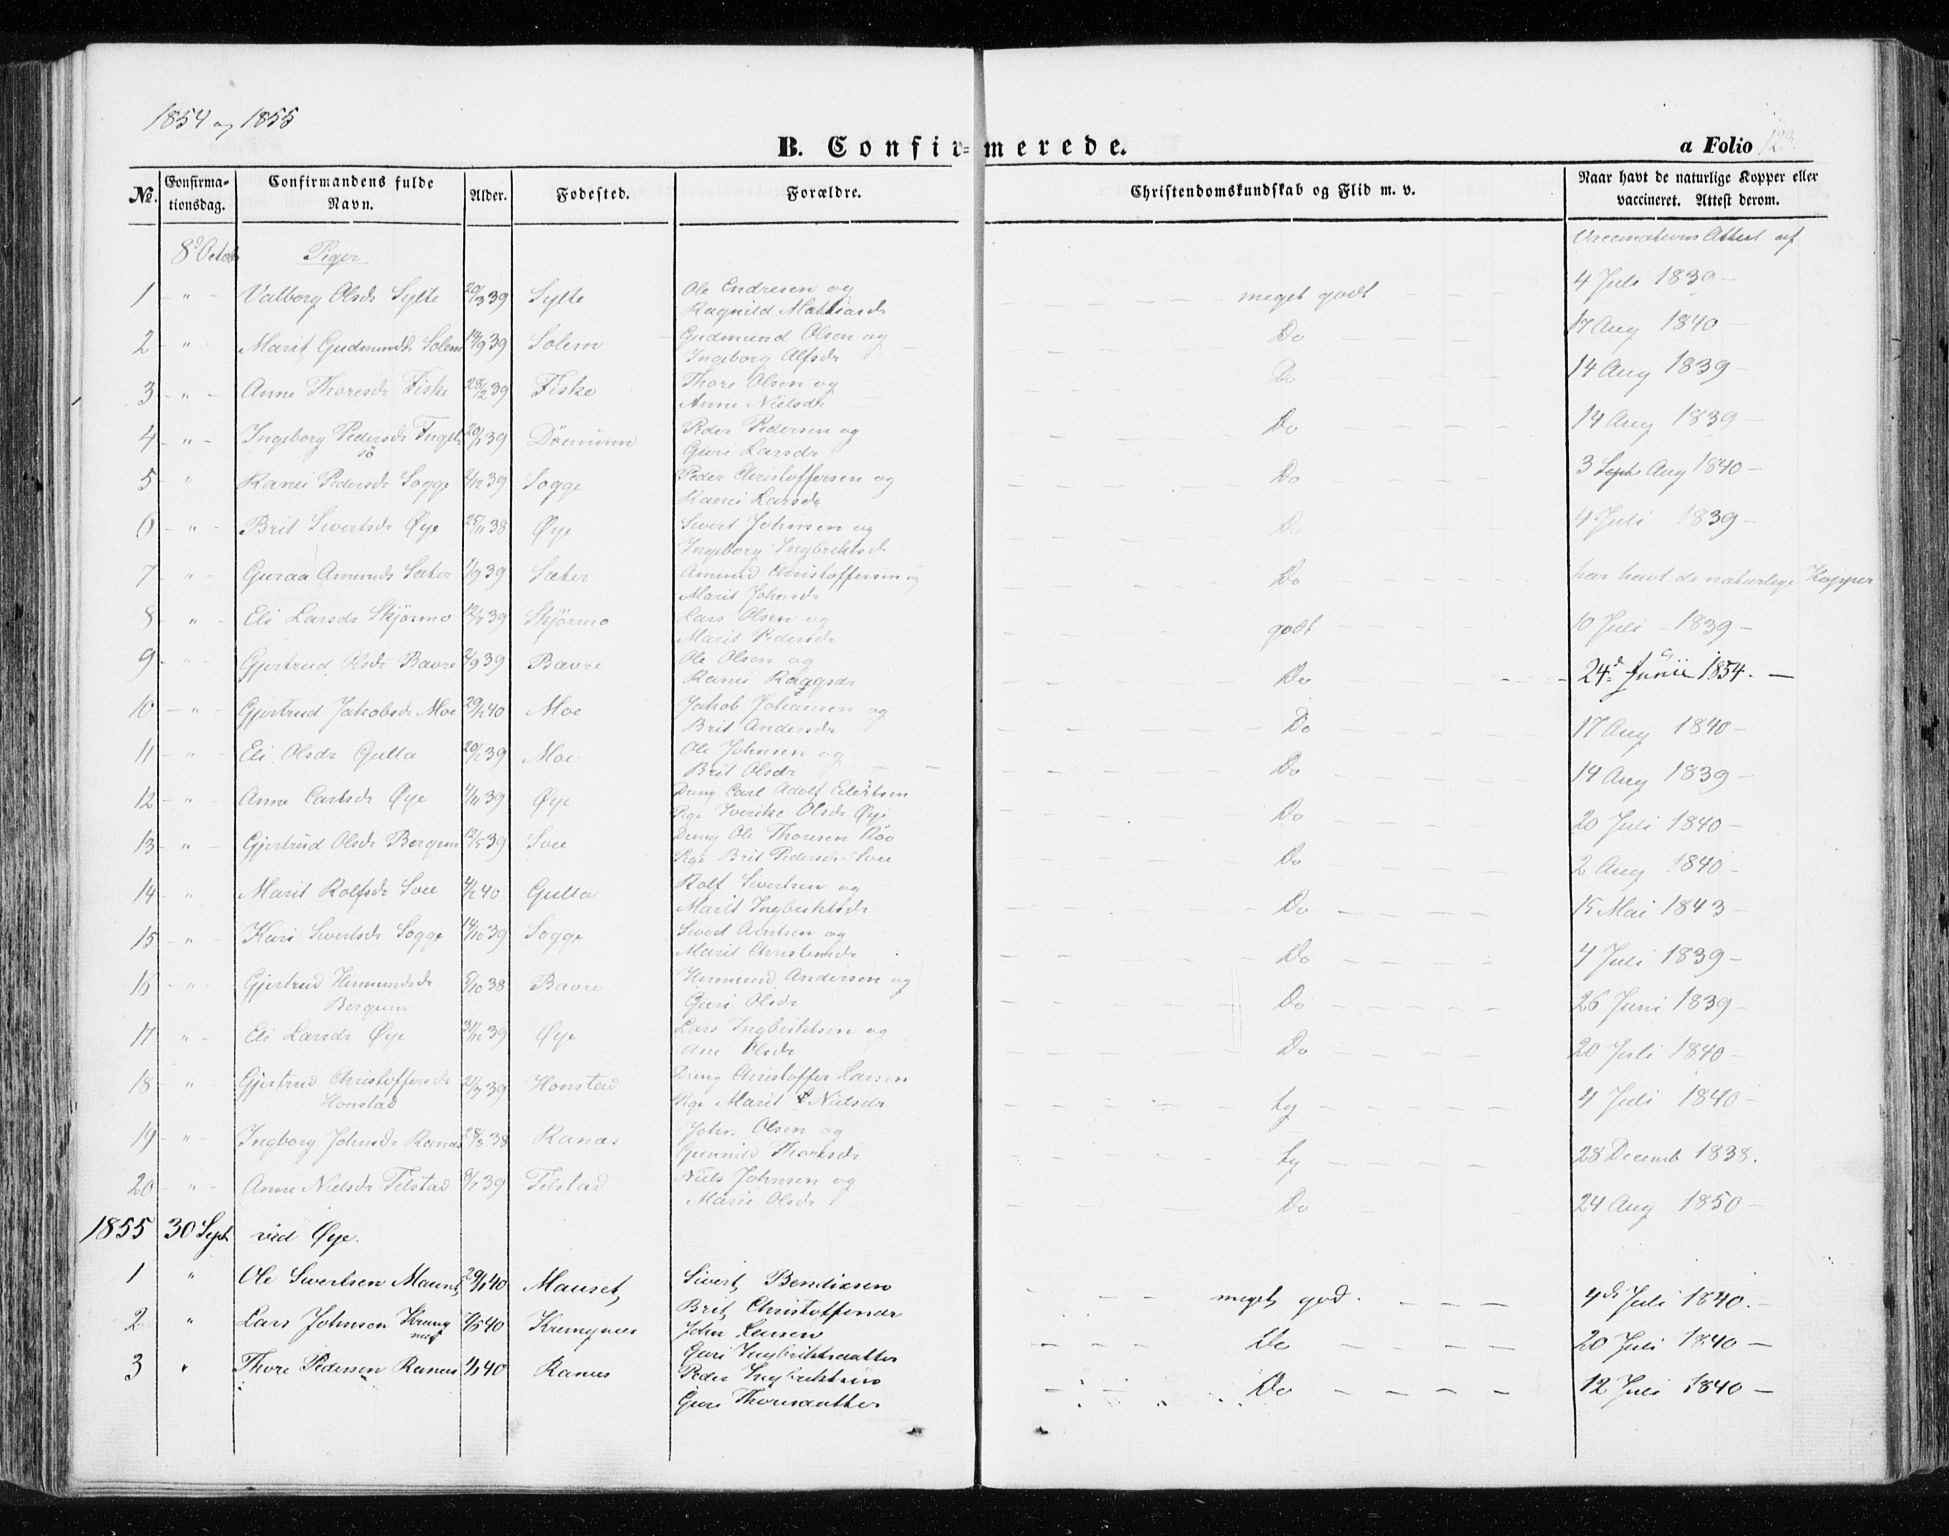 1854 og 1855
B. Confirmerede.
a Folio 123.
No. Confirmationsdag. Confirmandens fulde Navn. Alder. Fødested. Forældre. Christendomskundskab og Flid m. v. Naar havt de naturlige Kopper eller vaccineret. Attest derom.
8de Octob Piger Vaccinations Attest af
1 " Valborg Olsdr Sylte 20/3 39 Sylte Ole Endresen og meget godt 4 Juli 1839
Ragnild Mathiasdr
2 " Marit Gudmundsdr Solem 14/9 39 Solem Gudmund Olsen og Do 17 Aug 1840
Ingeborg Alfsdr
3 " Anne Thoresdr Fiske 28/2 39 Fiske Thore Olsen og Do 14 Aug 1839
Anne Nielsdr
4 " Ingeborg Pedersdr 20/1 39 Peder Pedersen og Do 14 Aug 1839
Guri Larsdr
5 " Ranei Pedersdr Sogge 2/12 39 Sogge Peder Christoffersen og Do 3 Sept Aug 1840
Ranei Larsdr
6 " Brit Sivertsdr Øye 25/11 38 Øye Sivert Johnsen og Do 4 Juli 1839
Ingeborg Ingbriktsdr
7 " Guraa Amunds Sæter 1/9 39 Sæter Amund Christoffersen og Do har havt de naturlige Kopper
Marit Johnsdr
8 " Eli Larsdr Skjørmo 12/7 39 Skjørmo Lars Olsen og godt 10 Juli 1839
Marit Pedersdr
9 " Gjertrud Olsdr Bævre 2/9 39 Bævre Ole Olsen og Do 24de Junii 1854.
Ranei
10 " Gjertrud Jakobsdr Moe 29/1 40 Moe Jakob Johansen og Do 17 Aug 1840
Brit Andersdr
11 " Eli Olsdr Gulla 20/2 39 Moe Ole Johnsen og Do 14 Aug 1839
Brit Olsdr
12 " Anne Carlsdr Øye 4/11 39 Øye Dreng Carl Adolf Eilertsen Do 20 Juli 1840
Pige Olsdr Øye
13 " Gjertrud Olsdr Bergum 12/5 39 Soee Dreng Ole Thoresen Røv Do 2 Aug 1840
Pige Brit Pedersdr Soee
14 " Marit Rolfsdr Soee 4/2 40 Gulla Rolf Sivertsen og Do 15 Mai 1843
Marit Ingbriktsdr
15 " Kari Sivertsdr Sogge 14/10 39 Sogge Sivert Arntsen og Do 4 Juli 1839
Marit Christensdr
16 " Gjertrud Hemundsdr 5/10 38 Bævre Hemund Andersen og Do 26 Juni 1839
Bergum Guri Olsdr
17 " Eli Larsdr Øye 31/12 39 Øye Lars Ingbriktsen og Do 20 Juli 1840
Ane Olsdr
18 " Gjertrud Christoffersdr 21/7 39 Honstad Dreng Christoffer Larsen tg 4 Juli 1840
Honstad Pige Marit Nielsdr
19 " Ingborg Johnsdr Ranæs 28/8 38 Ranæs John Olsen og tg 28 Decemb 1838.
Gunnild
20 " Anne Nielsdr Telstad 8/7 39 Telstad Niels Johnsen og Do 24 Aug 1850
Marie Olsdr
1855 30 Sept ved Øye.
1 " Ole Sivertsen Mauset 29/1 40 Mauset Sivert Bendixsen meget god. 4de Juli 1840.
Brit Christoffersdr
2 " Lars Johnsen Krangnæs 7/5 40 Krangnæs John Larsen Do 20 Juli 1840
Guri Ingbriktsdatter
3 " Thore Pedersen Ranæs 1/1 40 Ranæs Peder Ingbriktsen Do 12 Juli 1840
Guri Thoresdatter